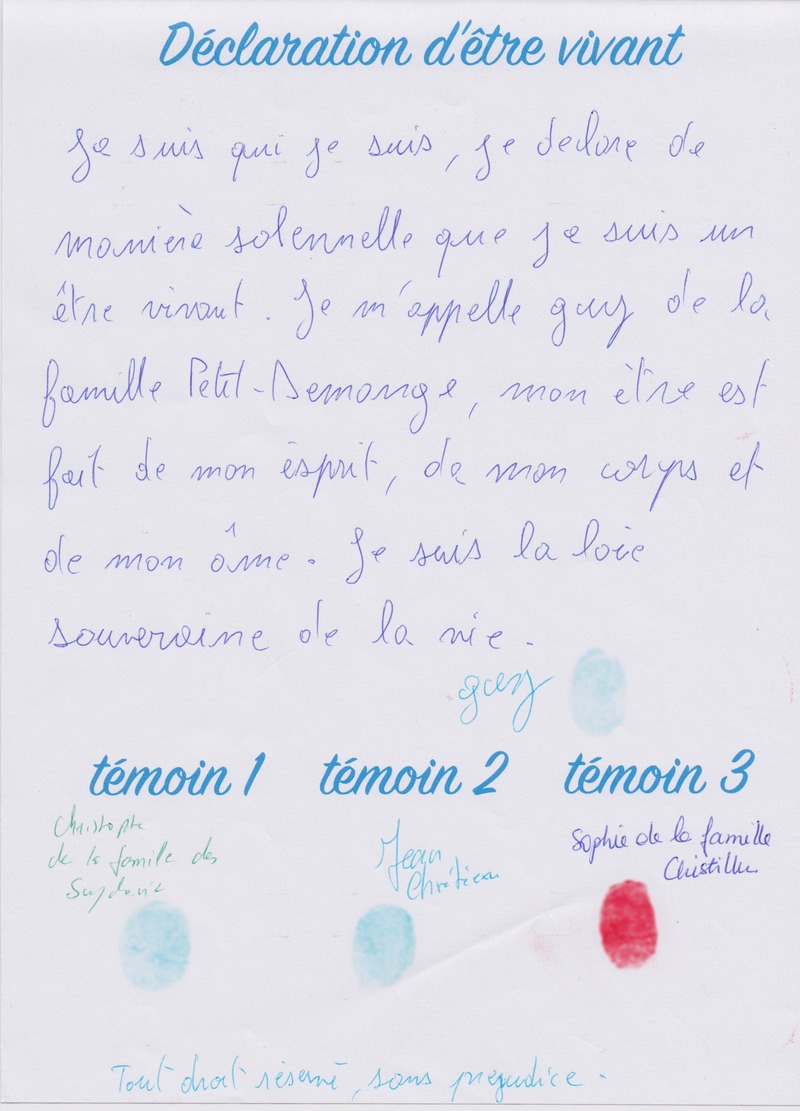 Déclaration d'être vivant
Je suis qui je suis, je declare de
manière solennelle que je suis un
être vivant. Je m'appelle guy de la
famille Petit-Demange, mon être est
fait de mon ésprit, de mon corps et
de mon âme. Je suis la loie
souveraine de la vie.
guy
témoin 1 témoin 2 témoin 3
Christophe
de la famille des
Jean
Chrétien
Sophie de la famille
Tout droit réservé, sans prejudice.